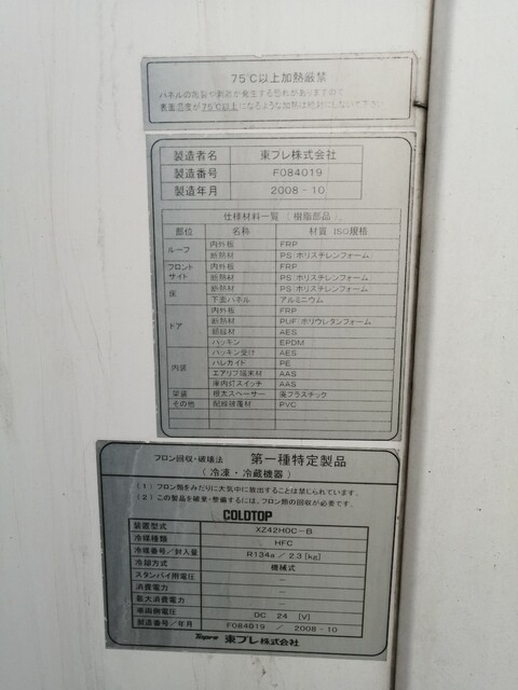 75℃以上加熱厳禁
パネルの亀裂や剥離が発生する恐れがありますので
表面温度が75℃以上になるような加熱は絶対にしないで下さい
製造者名 東プレ株式会社
製造番号 F084019
製造年月 2008-10
仕様材料一覧 (樹脂部品)
部位 名称 材質 ISO規格
ルーフ 内外板 FRP
断熱材 PS:ポリスチレンフォーム
フロント サイド 内外板 FRP
断熱材 PS:ポリスチレンフォーム
床 断熱材 PS:ポリスチレンフォーム
下面パネル アルミニウム
ドア 内外板 FRP
断熱材 PUF:ポリウレタンフォーム
額縁材 AES
パッキン EPDM
内装 パッキン受け AES
PE
エアリブ端末材 AAS
庫内灯スイッチ AAS
架装 根太スペーサー 廃プラスチック
その他 配線被覆材 PVC
フロン回収・破壊法 第一種特定製品
(冷凍・冷蔵機器)
(1)フロン類をみだりに大気中に放出することは禁じられています。
(2)この製品を廃棄・整備するには、フロン類の回収が必要です。
COLDTOP
装置型式 XZ42HOC-B
冷媒種類 HFC
冷媒番号/封入量 R134a / 2.3 [kg]
冷却方式 機械式
スタンバイ用電圧 -
消費電力 -
最大消費電力 -
車両側電圧 DC 24 [V]
製造番号/年月 F084019 / 2008-10
Topre 東プレ株式会社